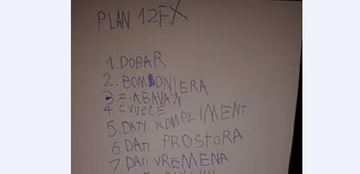 PLAN 12FX
1. DOBAR
2. BOMBONJERA
3. ZABAVAN
4. CVIJEĆE
5. DATI KOMPLIMENT
6. DATI PROSTORA
7. DATI VREMENA